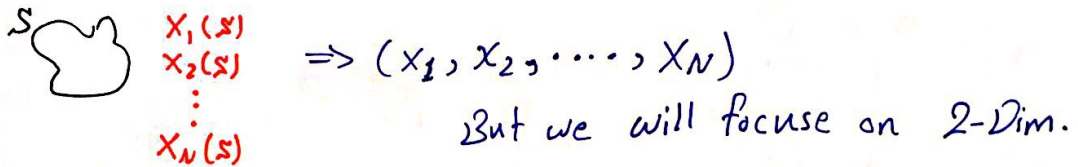 S X₁(s) ⇒ (x₁, x₂, ‥‥, X_N)
X₂(s)
⋮
X_N(s)
But we will focuse on 2-Dim.